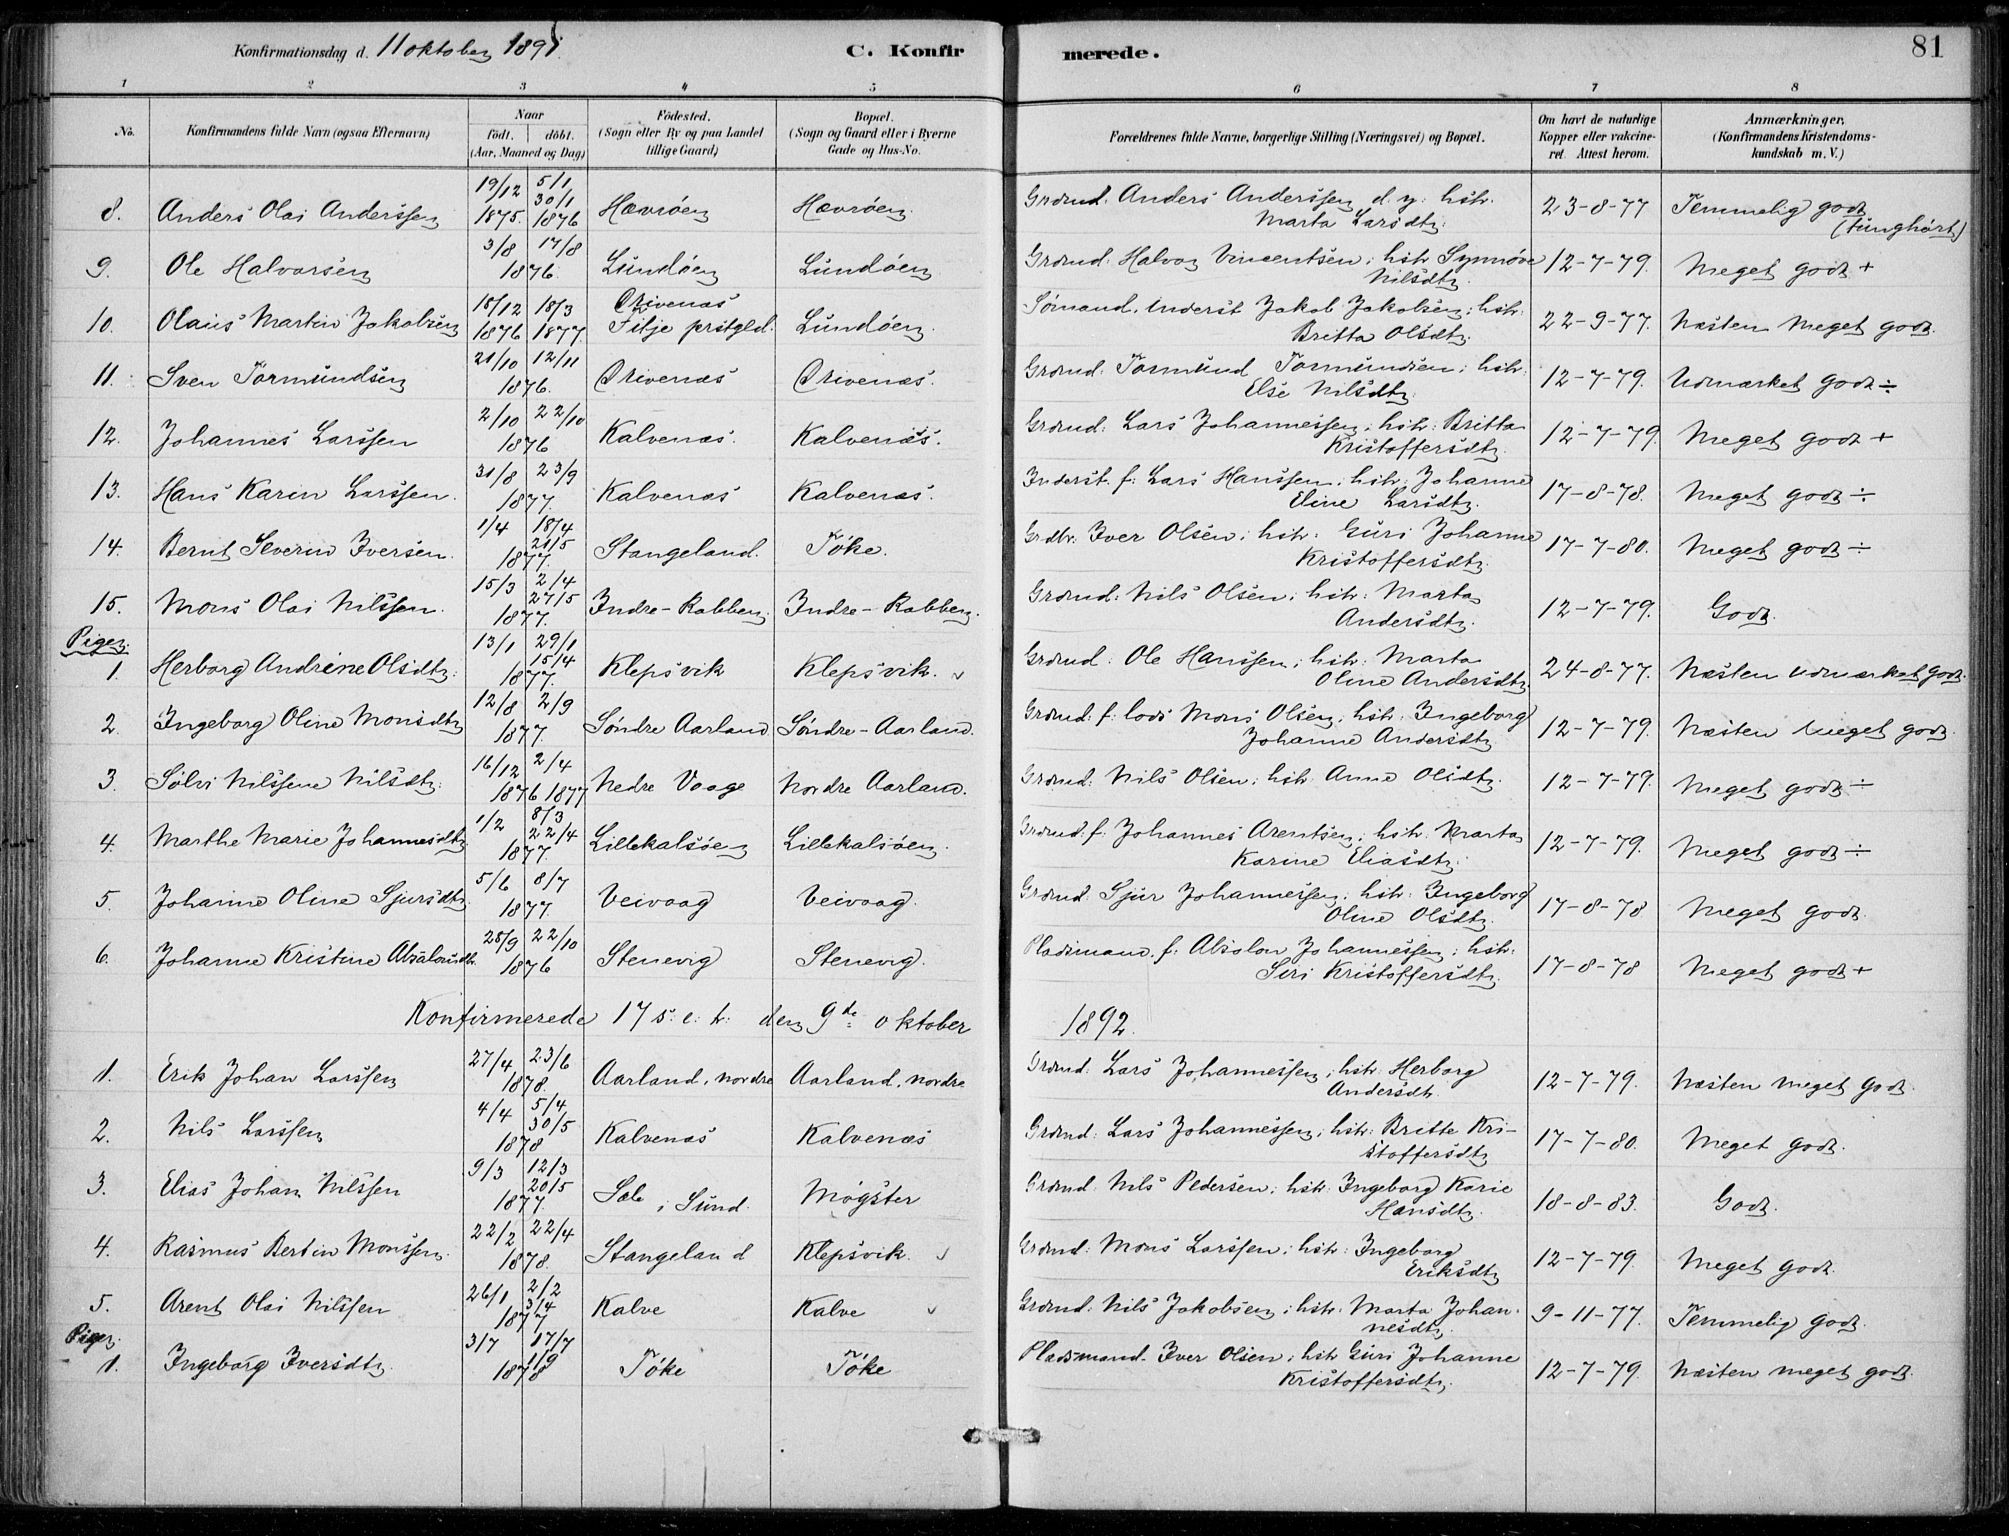 Konfirmationsdag d. 11 oktober 1891. C. Konfir merede. 81
1 2 3 4 5 6 7 8
No. Konfirmandens fulde Navn (ogsaa Efternavn) Naar födt. döbt. (Aar, Maaned og Dag) Födested. (Sogn eller By og paa Landet tillige Gaard) Bopæl. (Sogn og Gaard eller i Byerne Gade og Hus-No. Forældrenes fulde Navne, borgerlige Stilling (Næringsvei) og Bopæl. Om havt de naturlige Kopper eller vakcineret. Attest herom. Anmærkninger, (Konfirmandens Kristendomskundskab m. V.)
8. Anders Olai Anderssen 19/12 1875. 5/1 30/1 1876 Hævröen Hævröen. Grdmd. Anders Anderssen d. y. hstr. Marta Larsdtr. 23-8-77 Temmelig godt (tunghört)
9. Ole Halvorsen 3/8 17/8 1876. Lundöen Lundöen Grdmd. Halvor Vincentsen; hstr Synnöve Nilsdtr. 12-7-79. Meget godt +
10. Olaus Martin Jakobsen 18/12 1876 18/3 1877. Drivenæs Fitje prstgld. Lundöen. Sömand. Inderst Jakob Jakobsen; hstr. Britta Olsdtr. 22-9-77. Næsten Meget godt.
11. Sven Tormundsen 21/10 12/11 1876. Drivenæs Drivenæs. Grdmd: Tormund Tormundsen; hstr. Else Nilsdtr. 12-7-79. Udmærket godt ÷
12. Johannes Larssen 2/10 22/10 1876 Kalvenæs. Kalvenæs. Grdmd: Lars Johannessen; hstr: Britta Kristoffersdtr. 12-7-79. Meget godt +
13. Hans Karin Larssen. 31/8 23/9 1877. Kalvenæs Kalvenæs. Inderst. f: Lars Hanssen; hstr: Johanne Eline Larsdtr. 17-8-78. Meget godt ÷
14. Bernt Severin Iversen. 1/4 18/4 21/5 1877. Stangeland. Töke. Grdbr. Iver Olsen; hstr: Guri Johanne Kristoffersdtr. 17-7-80. Meget godt ÷
15. Mons Olai Nilssen. 15/3 2/4 27/5 1877. Indre-Rabben. Indre-Rabben. Grdmd: Nils Olsen; hstr: Marta Andersdtr. 12-7-79. Godt.
Piger.
1. Herborg Andrine Olsdtr. 13/1 29/1 15/4 1877. Klepsvik Klepsvik. Grdmd: Ole Hanssen; hstr: Marta Oline Andersdtr. 24-8-77. Næsten udmærket godt.
2. Ingeborg Oline Monsdtr 12/8 2/9 1877. Söndre Aarland Söndre-Aarland. Grdmd: f: lods Mons Olsen; hstr: Ingeborg Johanne Andersdtr 12-7-79. Næsten meget godt.
3. Sölvi Nilssine Nilsdtr. 16/12 2/4 1876 1877 Nedre Vaage Nordre Aarland. Grdmd: Nils Olsen; hstr: Anne Olsdtr. 12-7-79. Meget godt ÷
4. Marthe Marie Johannesdtr 1/2 8/3 22/4 1877. Lillekalsöen Lillekalsöen. Grdmd: f: Johannes Arentsen; hstr: Marta Karine Eliasdtr. 12-7-79. Meget godt ÷
5. Johanne Oline Sjursdtr. 5/6 8/7 1877. Veivaag Veivaag. Grdmd: Sjur Johannessen; hstr: Ingeborg Oline Olsdtr. 17-8-78 Meget godt
6. Johanne Kristine Absalonsdtr. 28/9 22/10 1876 Stenevig Stenevig. Pladsmand. f: Absolon Johannessen; hstr. Siri Kristoffersdtr. 17-8-78 Meget godt +
Konfirmerede 17 s: e: tr: den 9de oktober 1892.
1. Erik Johan Larssen 27/4 23/6 1878. Aarland, nordre Aarland, nordre Grdmd: Lars Johannessen; hstr. Herborg Andersdtr. 12-7-79. Næsten meget godt
2. Nils Larssen 4/4 5/4 30/5 1878 Kalvenæs Kalvenæs Grdmd: Lars Johannessen; hstr: Britte Kristoffersdtr 17-7-80. Meget godt.
3. Elias Johan Nilssen 9/3 12/3 20/5 1877. i Sund. Mögster Grdmd. Nils Pedersen; hstr: Ingeborg Karie Hansdtr. 18-8-83. Godt.
4. Rasmus Bertin Monssen. 22/2 22/4 1878. Stangeland Klepsvik. Grdmd: Mons Larssen; hstr: Ingeborg Eriksdtr 12-7-79. Meget godt.
5. Arent Olai Nilssen 26/1 2/2 3/4 1877 Kalve Kalve Grdmd: Nils Jakobsen; hstr: Marta Johannesdtr. 9-11-77. Temmelig godt.
Piger.
1. Ingeborg Iversdtr. 3/7 17/7 1/9 1878 Töke Töke Pladsmand. Iver Olsen; hstr Guri Johanne Kristoffersdtr. 12-7-79. Næsten meget godt.